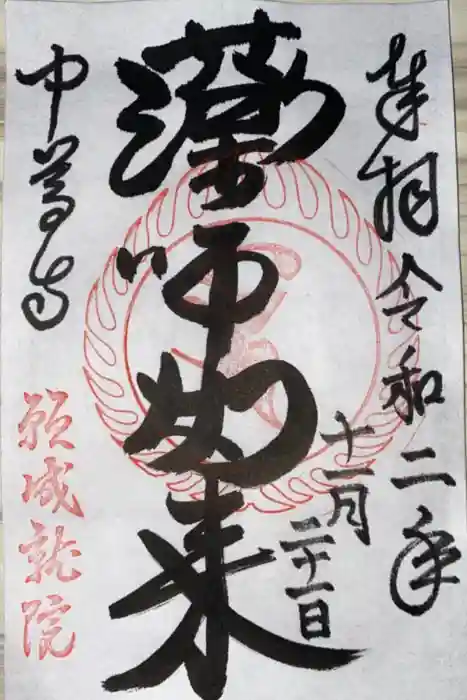 奉拝 令和二年
十一月二十一日
薬師如来
中尊寺
願成就院